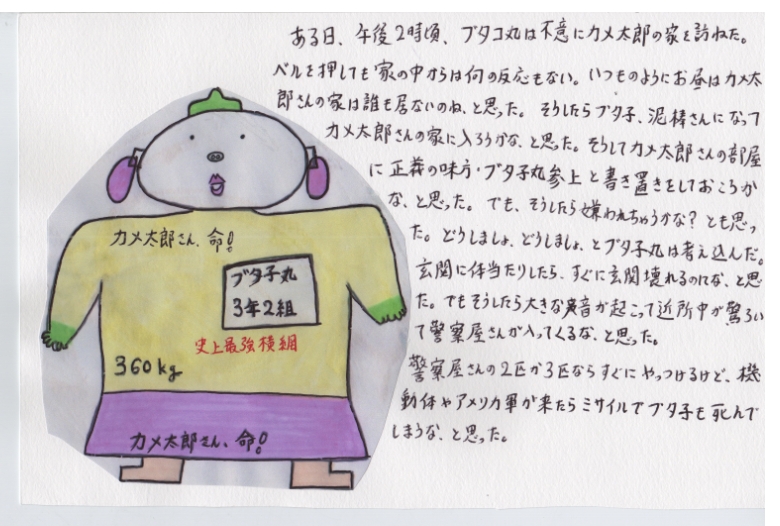 ある日、午後2時頃、ブタコ丸は不意にカメ太郎の家を訪ねた。
ベルを押しても家の中からは何の反応もない。いつものようにお昼はカメ太
郎さんの家は誰も居ないのね、と思った。そうしたらブタ子、泥棒さんになって
カメ太郎さんの家に入ろうかな、と思った。そうしてカメ太郎さんの部屋
に正義の味方・ブタ子丸参上と書き置きをしておこうか
な、と思った。でも、そうしたら嫌われちゃうかな?とも思っ
た。どうしましょ、どうしましょ、とブタ子丸は考え込んだ。
玄関に体当たりしたら、すぐに玄関壊れるのにな、と思っ
た。でもそうしたら大きな音が起こって近所中が驚ろい
て警察屋さんが入ってくるな、と思った。
警察屋さんの2匹か3匹ならすぐにやっつけるけど、機
動体やアメリカ軍が来たらミサイルでブタ子も死んで
しまうな、と思った。
カメ太郎さん、命!
ブタ子丸
3年2組
史上最強横綱
360kg
カメ太郎さん、命!